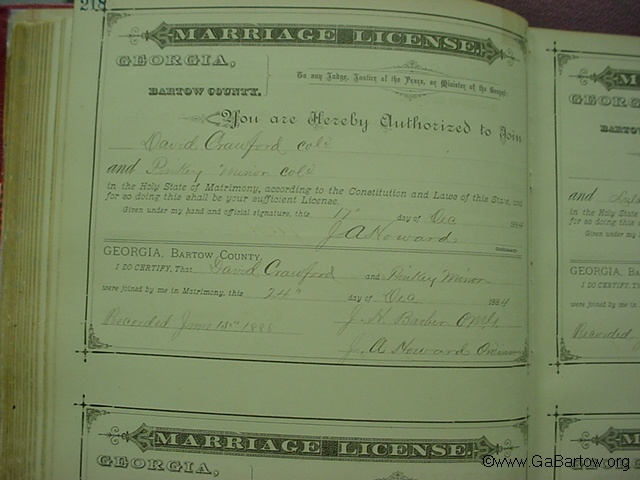 218
MARRIAGE LICENSE.
GEORGIA,
BARTOW COUNTY.
To any Judge, Justice of the Peace, or Minister of the Gospel:
You are Hereby Authorized to Join
David Crawford col
and Pinkey Minor col
in the Holy State of Matrimony, according to the Constitution and Laws of this State, and
for so doing this shall be your sufficient License.
Given under my hand and official signature, this 17" day of Dec 1884
J. A Howard
GEORGIA, BARTOW COUNTY,
I DO CERTIFY, That David Crawford and Pinkey Minor
were joined by me in Matrimony, this 24" day of Dec 1884
J. H.
Recorded June 188
J. A Howard Ordinary
MARRIAGE LICENSE.
GEORGIA,
GEORG
BARTOW
and
in the Holy State
for so doing this
Given under my
GEORGIA, BA
I DO CERTIFY,
were joined by me in
Recorded
MAR
GEORG
©www.GaBartow.org